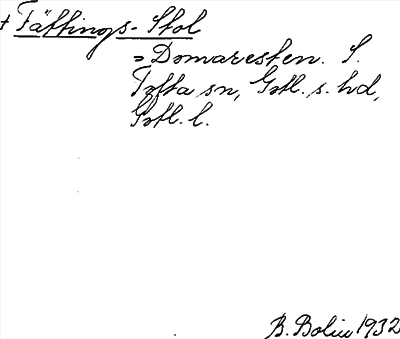 + Fättings-Stol
= Domaresten. S.
Tofta sn, Gotl. s. hd,
Gotl. l.
B. Bolin 1932